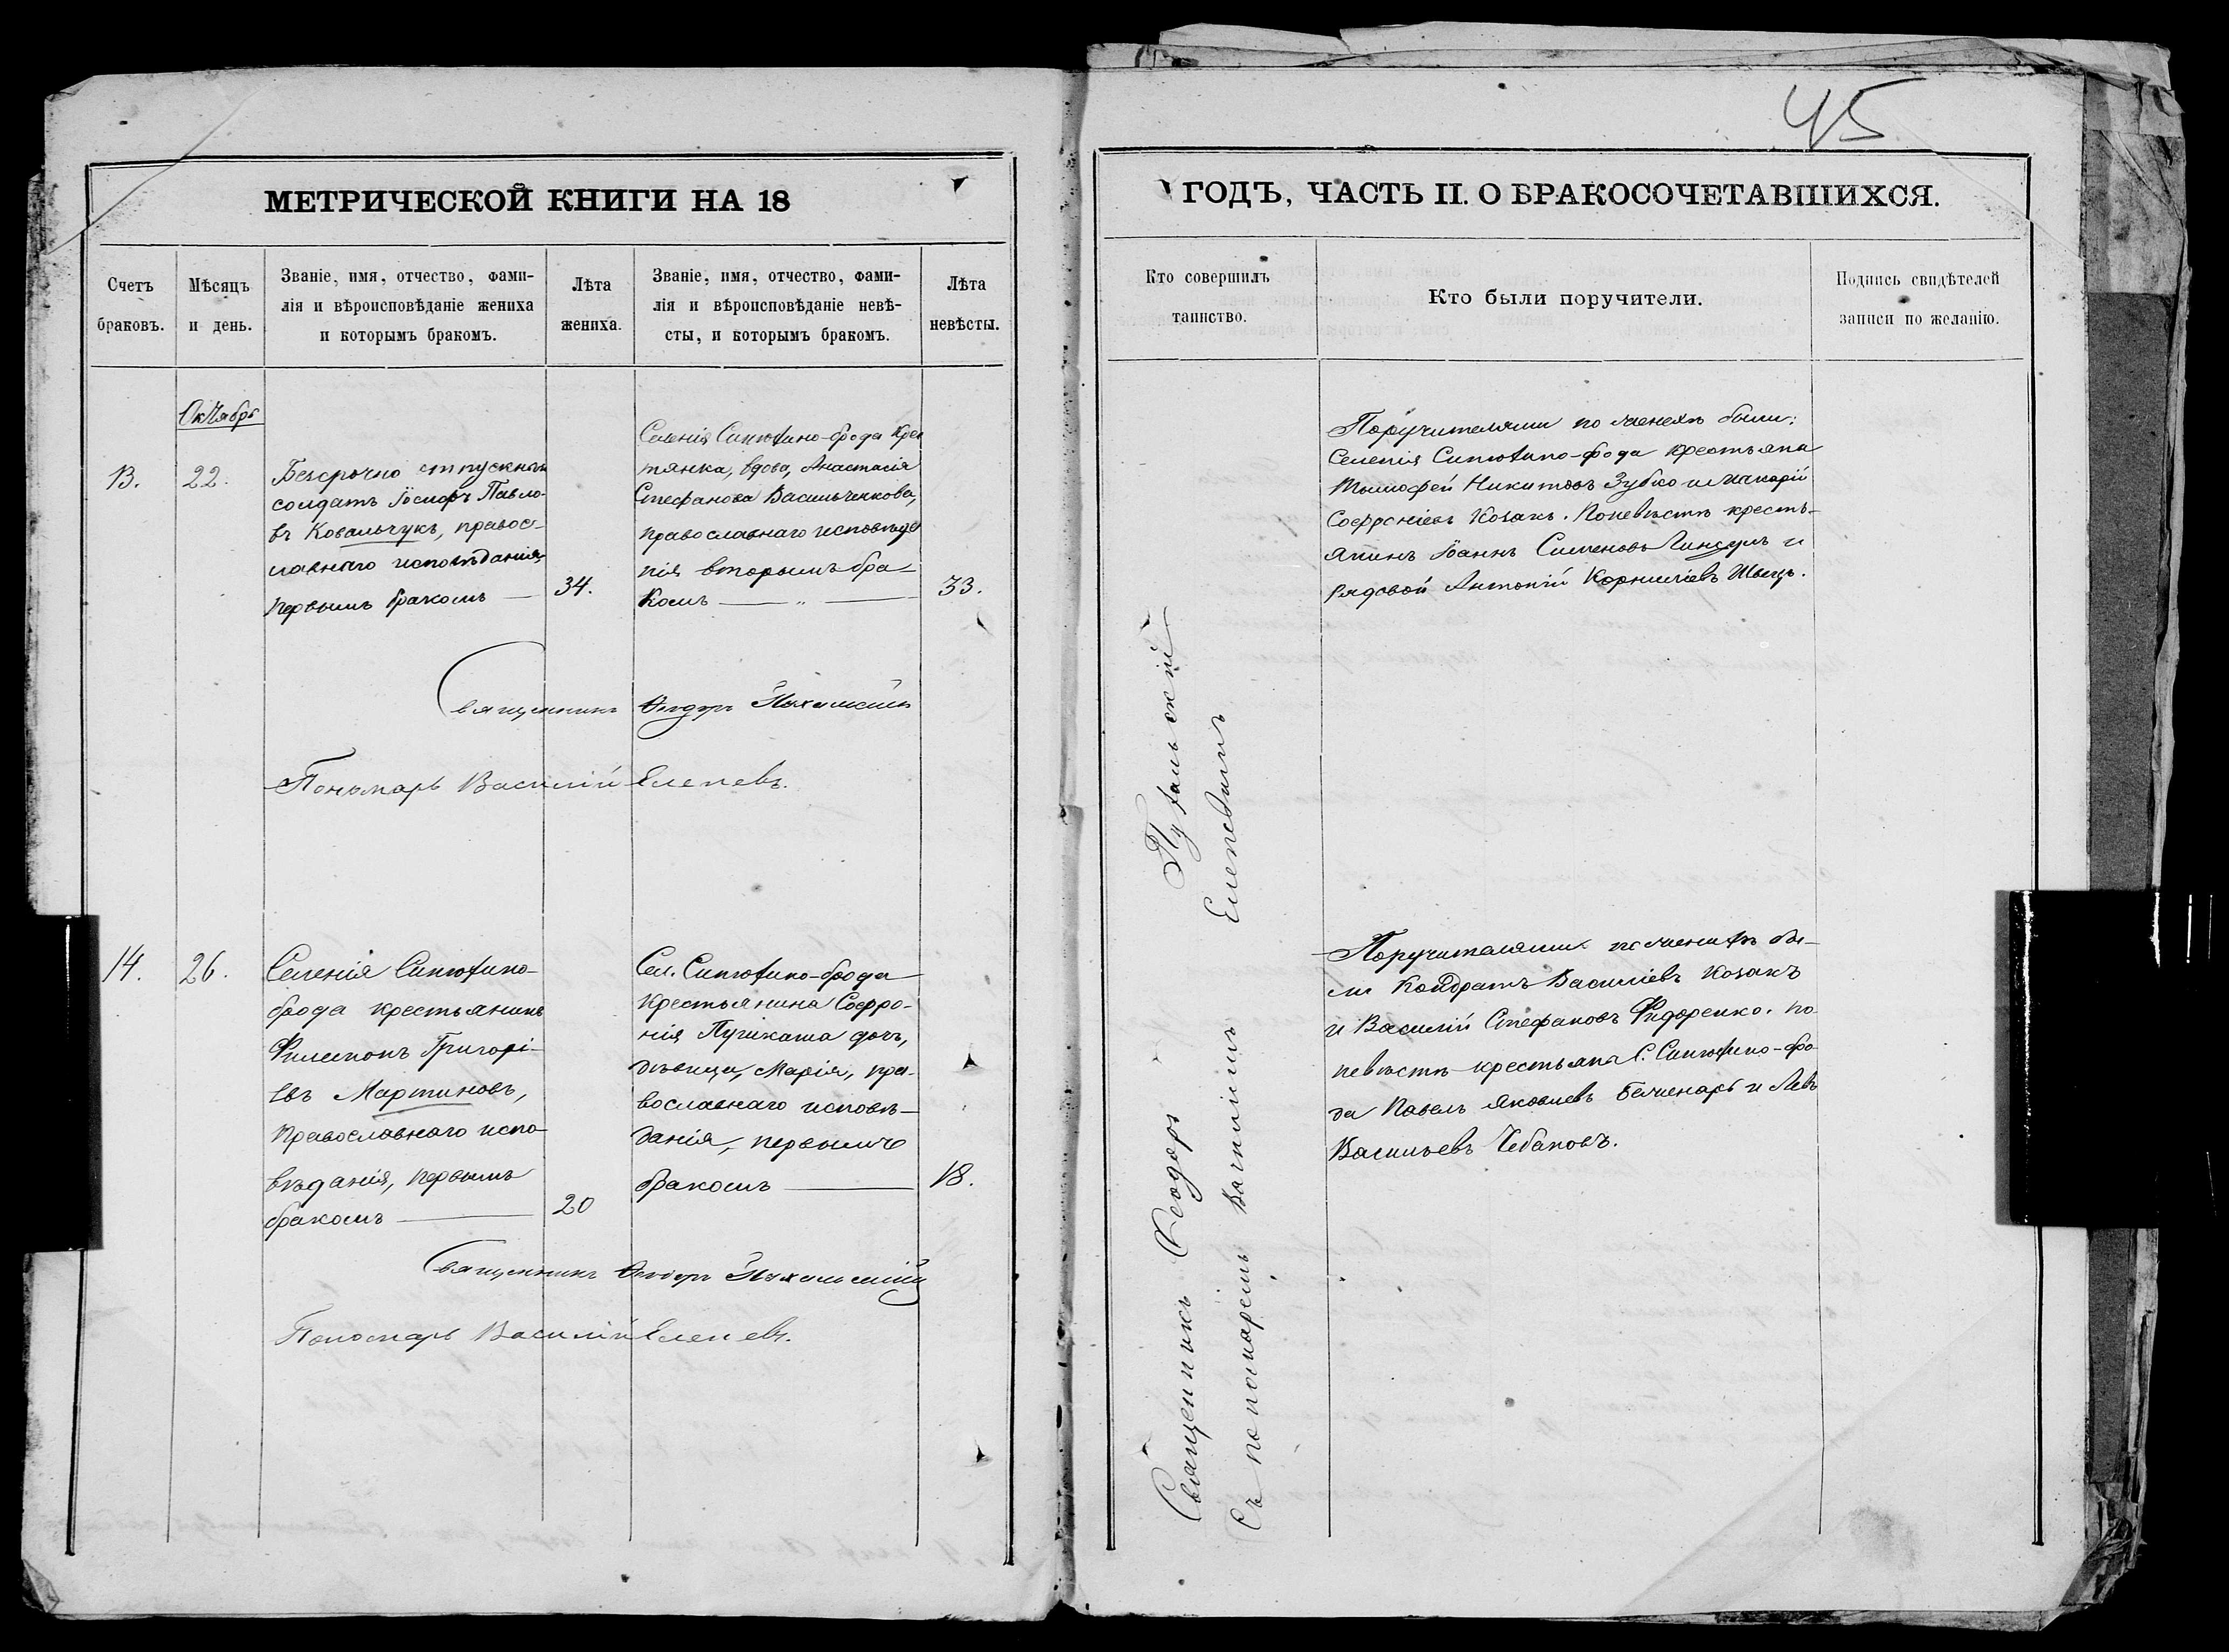 45
МЕТРИЧЕСКОЙ КНИГИ НА 18
ГОДЪ, ЧАСТЬ II. О БРАКОСОЧЕТАВШИХСЯ.
Счетъ
браковъ.
Мѣсяцъ
и день.
Званіе, имя, отчество, фами-
лія и вѣроисповѣданіе жениха
и которымъ бракомъ.
Лѣта
жениха.
Званіе, имя, отчество, фами-
лія и вѣроисповѣданіе невѣ-
сты, и которымъ бракомъ.
Лѣта
невѣсты.
Кто совершилъ
таинство.
Кто были поручители.
Подпись свидѣтелей
записи по желанію.
Октябрь
13.
22.
Безсрочно отпускный
солдатъ Іосифъ Павло-
въ Ковальчукъ, правос-
лавнаго исповѣданія,
первымъ бракомъ —
34.
Селенія Синютино-брода Крес
тянка, вдова, Анастасія
Стефанова Васильченкова,
православнаго исповѣда
нія вторымъ бра-
комъ — „ —
33.
Поручителями по женихѣ были:
Селенія Синютино-брода крестьяна
Тимофей Никитовъ Зубко и Макарій
Софроніевъ Козакъ. По невѣстѣ кресть-
янинъ Іоаннъ Симеоновъ и
рядовой Антоній Корниліевъ Швець.
Священникъ Ѳеодоръ
Пономарь Василій Еленевъ.
14.
26.
Селенія Синютино-
брода крестьянинъ
Филимонъ Григорі-
евъ Мартиновъ,
Православнаго испо-
вѣданія, первымъ
бракомъ —
20
Сел. Синютино-брода
Крестьянина Софро-
нія Пушкаша дочь,
дѣвица, Марія, пра-
вославнаго исповѣ-
данія, первымъ
бракомъ —
18.
Поручителями по женихѣ бы-
ли Кондратъ Василіевъ Козакъ
и Василій Стефановъ Фидоренко. по
невѣстѣ крестьяна С. Синютино-бро-
да Павелъ Яковлевъ Биченарь и Левъ
Васильевъ Чебановъ.
Священникъ Ѳеодоръ
Пономарь Василій Еленевъ.
Священникъ Ѳеодоръ
Съ пономаремъ Василіемъ Еленевымъ